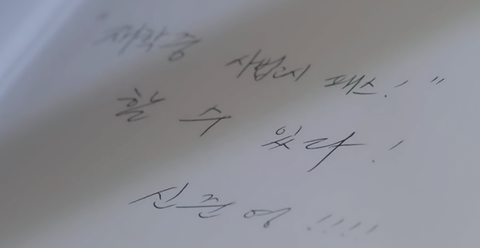 "재학중 사법고시 패스!"
할 수 있다!
신준영!!!!